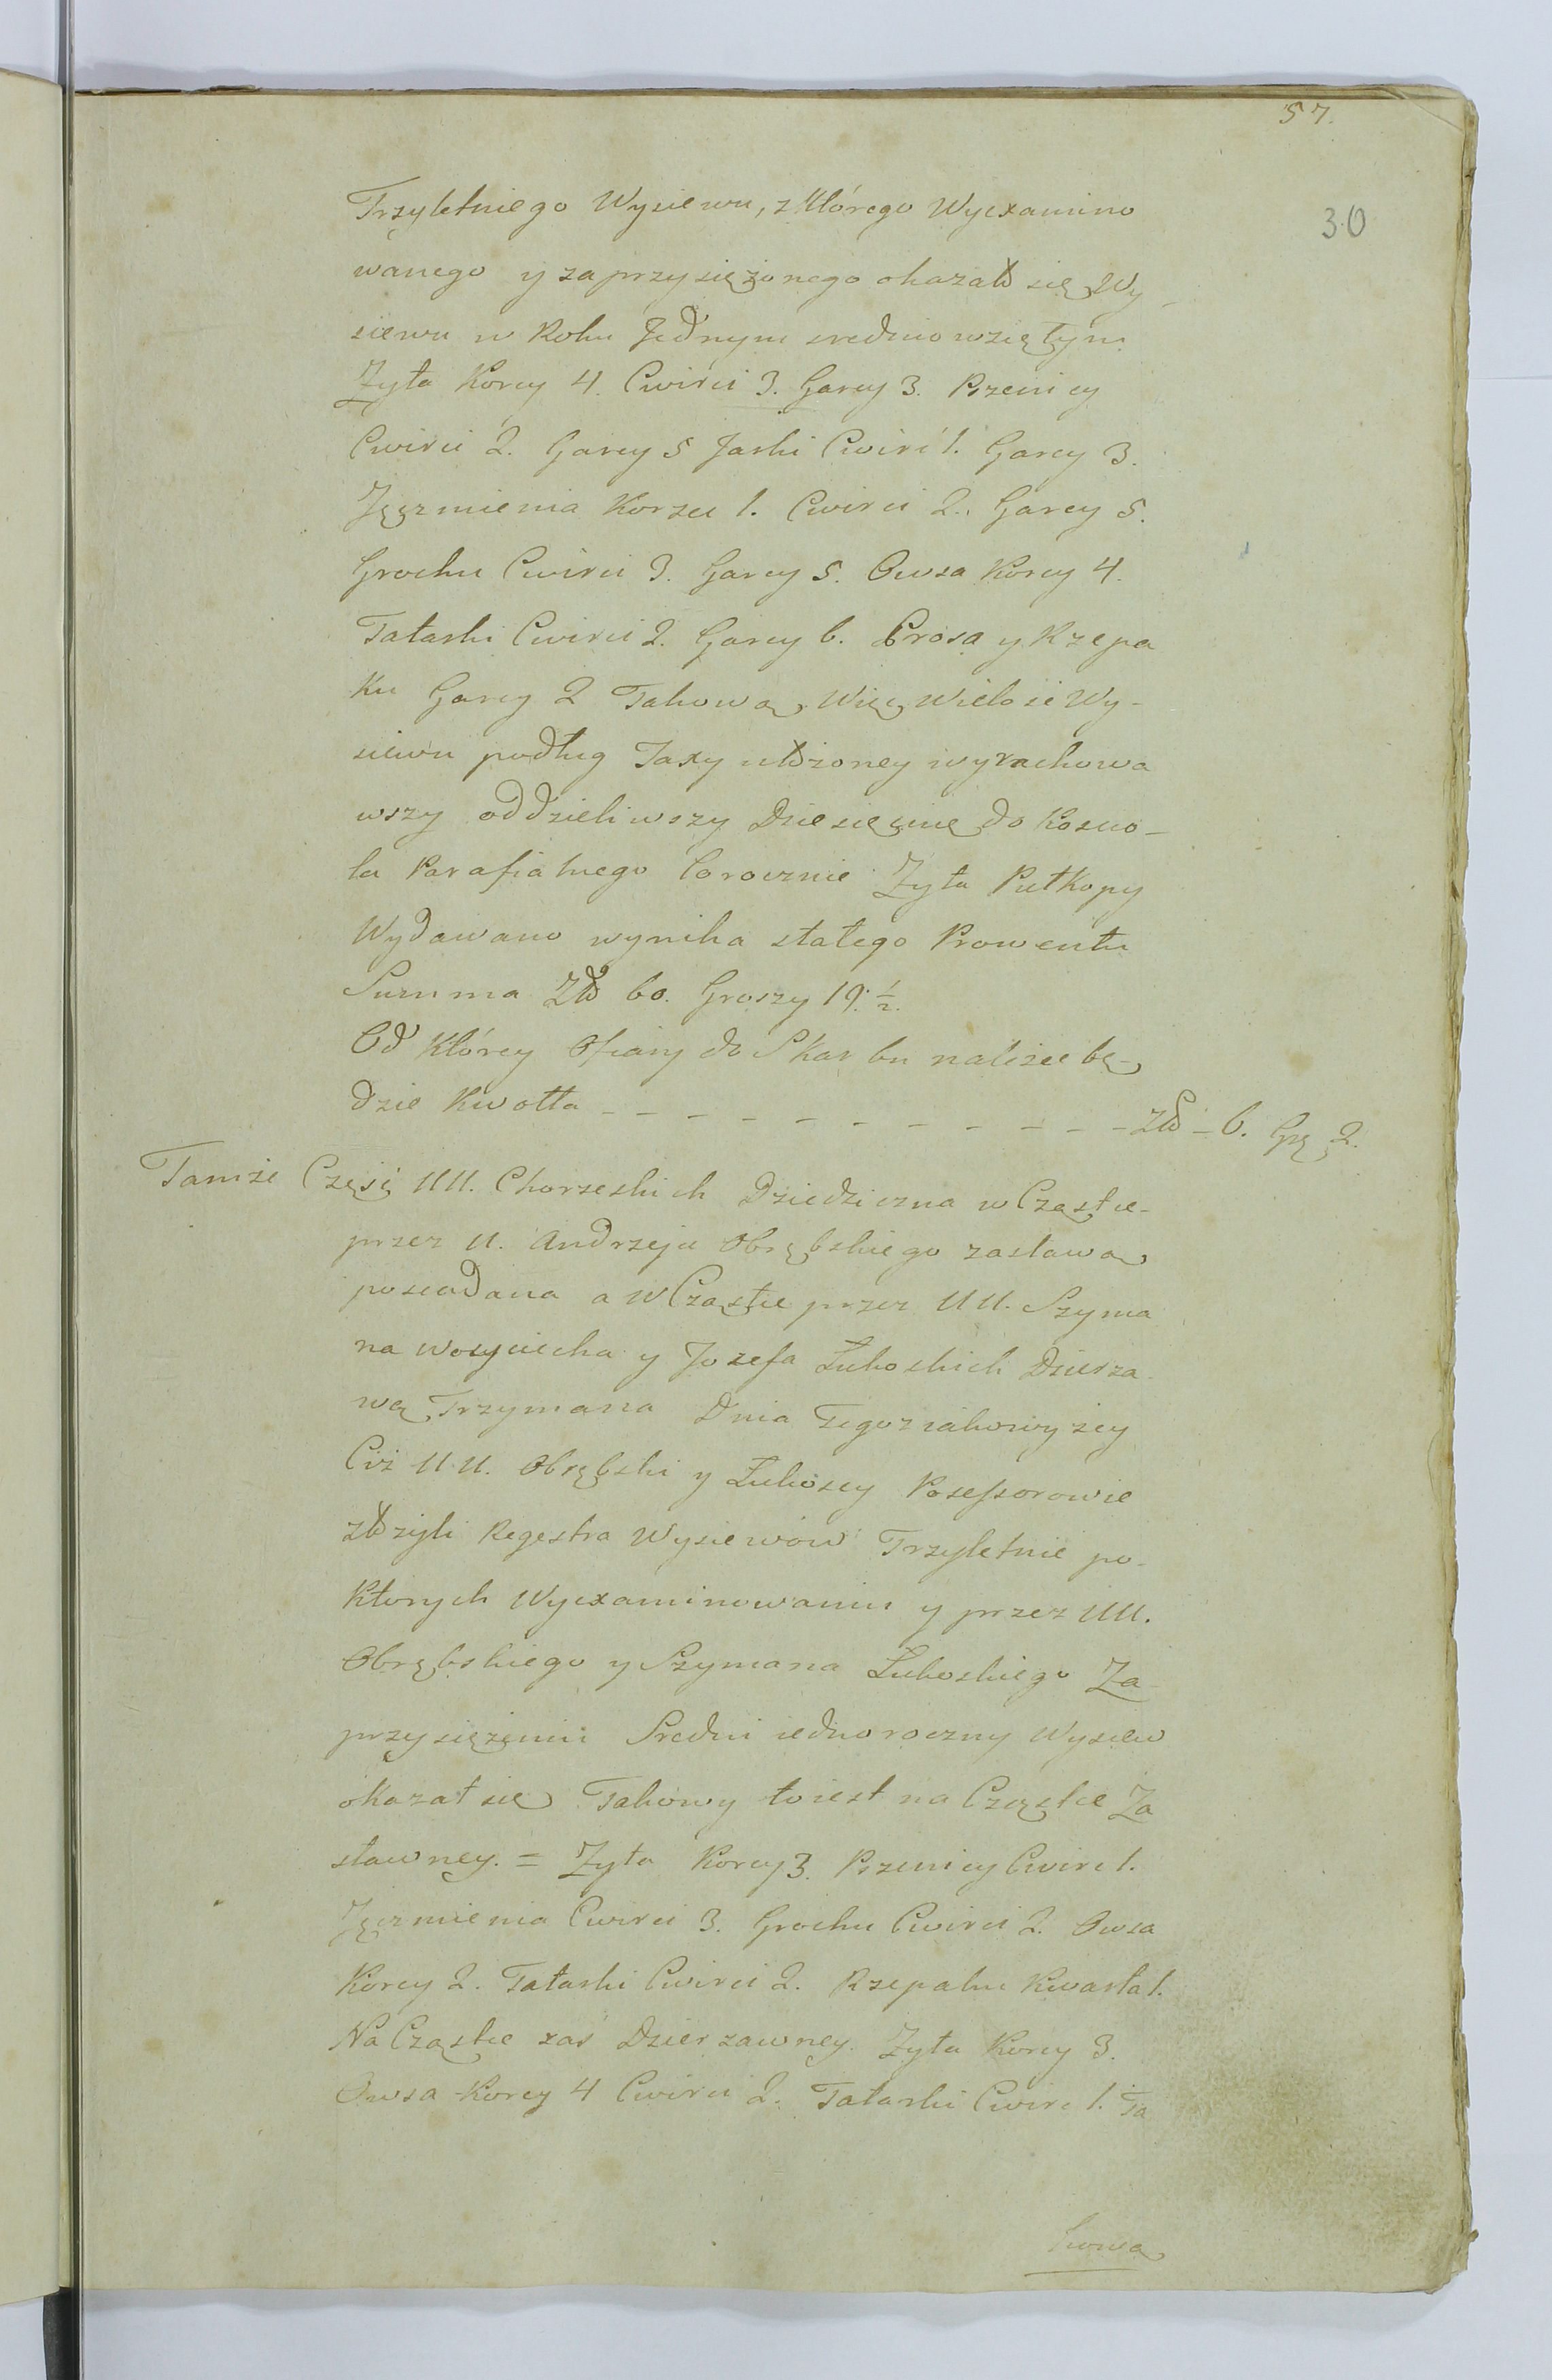 57.
30
Trzyletniego Wysiewu, z którego Wyexamino
wanego y zaprzysiężonego okazało się Wy-
siewu w Roku Jednym srednio wziętym
Zyta Korcy 4. Cwirci 3. Garcy 3. Pszenicy
Cwirci 2. Garcy 5 Jarki Cwirć 1. Garcy 3.
Jęczmienia Korzec 1. Cwirci 2. Garcy 5.
Grochu Cwirci 3. Garcy 5. Owsa Korcy 4.
Tatarki Cwirci 2. Garcy 6. Prosa y Rzepa
ku Garcy 2 Takową Więc Wielość Wy-
siewu podług Taxy ułożoney wyrachowa
wszy oddzieliwszy Dziesięcinę do Koscio-
ła Parafialnego Corocznie Zyta Pułkopy
Wydawano wynika stałego Prowentu
Summa Zło 60. Groszy 19. 1/2.
Od Którey Ofiary do Skarbu należec bę-
dzie Kwotta - - - - - - - - - - - Zło - 6. Grę 2.
Tamże Częsć UU. Chorzeskich Dziedziczna w Cząstce
przez U. Andrzeja Obrębskiego zastawą
posiadana a w Cząstce przez UU. Szyma
na Woyciecha y Jozefa Łukoskich Dzierza-
wą Trzymana Dnia Tegoz iako wyżey
Ciż UU. Obrębski y Łukoscy Posessorowie
złożyli Regestra Wysiewów Trzyletnie po-
których Wyexaminowaniu y przez UU.
Obrębskiego y Szymana Łukoskiego Za-
przysiężeniu Sredni iednoroczny Wysiew
okazał się Takowy to iest na Cząstce Za
stawney. = Zyta Korcy 3. Pszenicy Cwirc 1.
Jęczmienia Cwirci 3. Grochu Cwirci 2. Owsa
Korcy 2. Tatarki Cwirci 2. Rzepaku Kwarta 1.
Na Cząstce zaś Dzierzawney. Zyta Korcy 3.
Owsa Korcy 4 Cwirci 2. Tatarki Cwirc 1. Ta
kowa